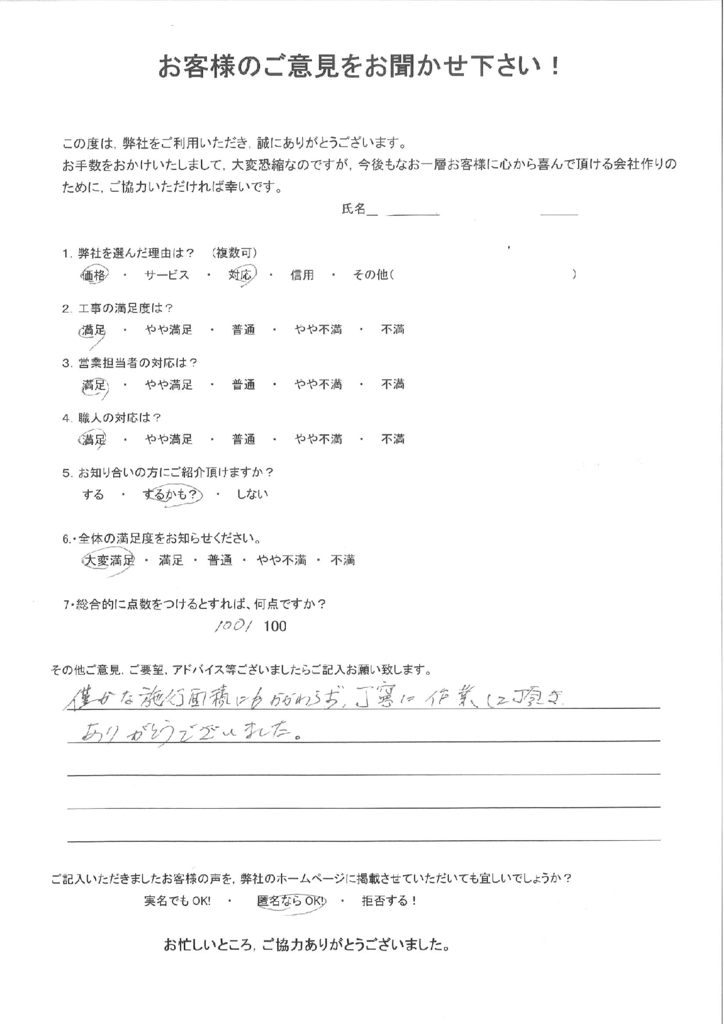 お客様のご意見をお聞かせ下さい！
この度は，弊社をご利用いただき，誠にありがとうございます。
お手数をおかけいたしまして，大変恐縮なのですが，今後もなお一層お客様に心から喜んで頂ける会社作りの
ために，ご協力いただければ幸いです。
氏名
1．弊社を選んだ理由は？　（複数可）
価格　・　サービス　・　対応　・　信用　・　その他（　　　　　　　　）
2．工事の満足度は？
満足　・　やや満足　・　普通　・　やや不満　・　不満
3．営業担当者の対応は？
満足　・　やや満足　・　普通　・　やや不満　・　不満
4．職人の対応は？
満足　・　やや満足　・　普通　・　やや不満　・　不満
5．お知り合いの方にご紹介頂けますか？
する　・　するかも？　・　しない
6.・全体の満足度をお知らせください。
大変満足　・　満足　・　普通　・　やや不満　・　不満
7・総合的に点数をつけるとすれば、何点ですか？
100/ 100
その他ご意見，ご要望，アドバイス等ございましたらご記入お願い致します。
僅かな施行面積にもかかわらず，丁寧に作業して頂き
ありがとうございました。
ご記入いただきましたお客様の声を，弊社のホームページに掲載させていただいても宜しいでしょうか？
実名でもOK!　・　匿名ならOK!　・　拒否する！
お忙しいところ，ご協力ありがとうございました。